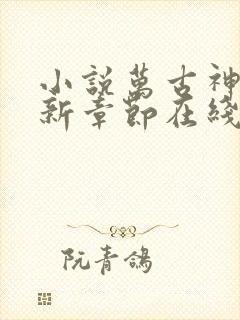 小說萬古神
新章節在綫
阮青鴿